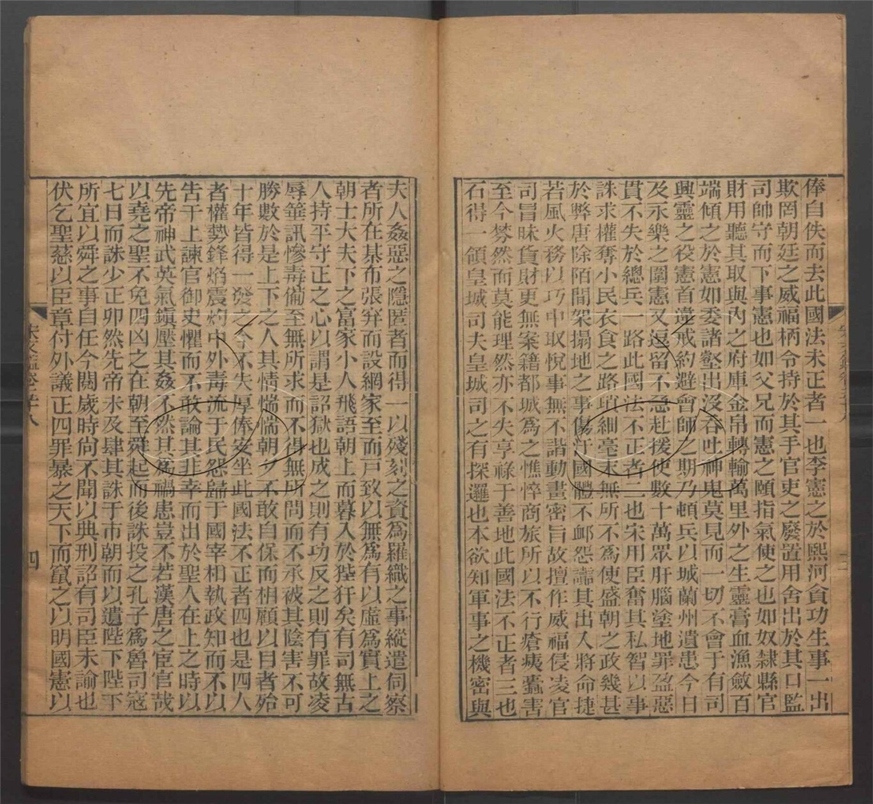 俸自佚而去此國法未正者一也李憲之於熙河貪功生事一出
欺罔朝廷之威福柄令持於其手官吏之廢置用舍出於其口監
司帥守而下事憲也如父兄而憲之頤指氣使之也如奴隸縣官
財用聽其取與內之府庫金帛轉輸萬里外之生靈膏血漁斂百
端傾之於憲如委諸壑出沒吞吐神鬼莫見而一切不會于有司
興靈之役憲首違戒約避會師之期乃頓兵以城蘭州遺患今日
及永樂之圍憲又逗留不急赴援使數十萬眾肝腦塗地罪盈惡
貫不失於總兵一路此國法不正者二也宋用臣奮其私智以事
誅求權奪小民衣食之路瑣細毫末無所不為使盛朝之政幾甚
於弊唐除陌間架搨地之事傷汙國體不卹怨讟其出入將命捷
若風火務以巧中取悅事無不諧動畫密旨故擅作威福侵凌官
司冒昧貨財更無案籍都城為之憔悴商旅所以不行瘡痍蠹害
至今棼然而莫能理然亦不失享祿于善地此國法不正者三也
石得一領皇城司夫皇城司之有探邏也本欲知軍事之機密與
夫人姦惡之隱匿者而得一以殘刻之資為羅織之事縱遣伺察
者所在棊布張穽而設網家至而戸致以無為有以虛為實上之
朝士大夫下之富家小人飛語朝上而暮入於狴犴矣有司無古
人持平守正之心以謂是詔獄也成之則有功反之則有罪故凌
辱箠訊慘毒備至無所求而不得無所問而不承被其陰害不可
勝數於是上下之人其情惴惴朝夕不敢自保而相顧以目者殆
十年皆得一發之今不失厚俸安坐此國法不正者四也是四人
者權勢鋒焰震灼中外毒流于民怨歸于國宰相執政知而不以
告于上諫官御史懼而不敢論其非幸而出於聖人在上之時以
先帝神武英氣鎮壓其姦不然其為禍患豈不若漢唐之宦官哉
以堯之聖不免四凶之在朝至舜起而後誅投之孔子為魯司寇
七日而誅少正卯然先帝未及肆其誅于市朝而以遺陛下陛下
所宜以舜之事自任今闋歲時尚不聞以典刑詔有司臣未諭也
伏乞聖慈以臣章付外議正四罪暴之天下而竄之以明國憲以
四